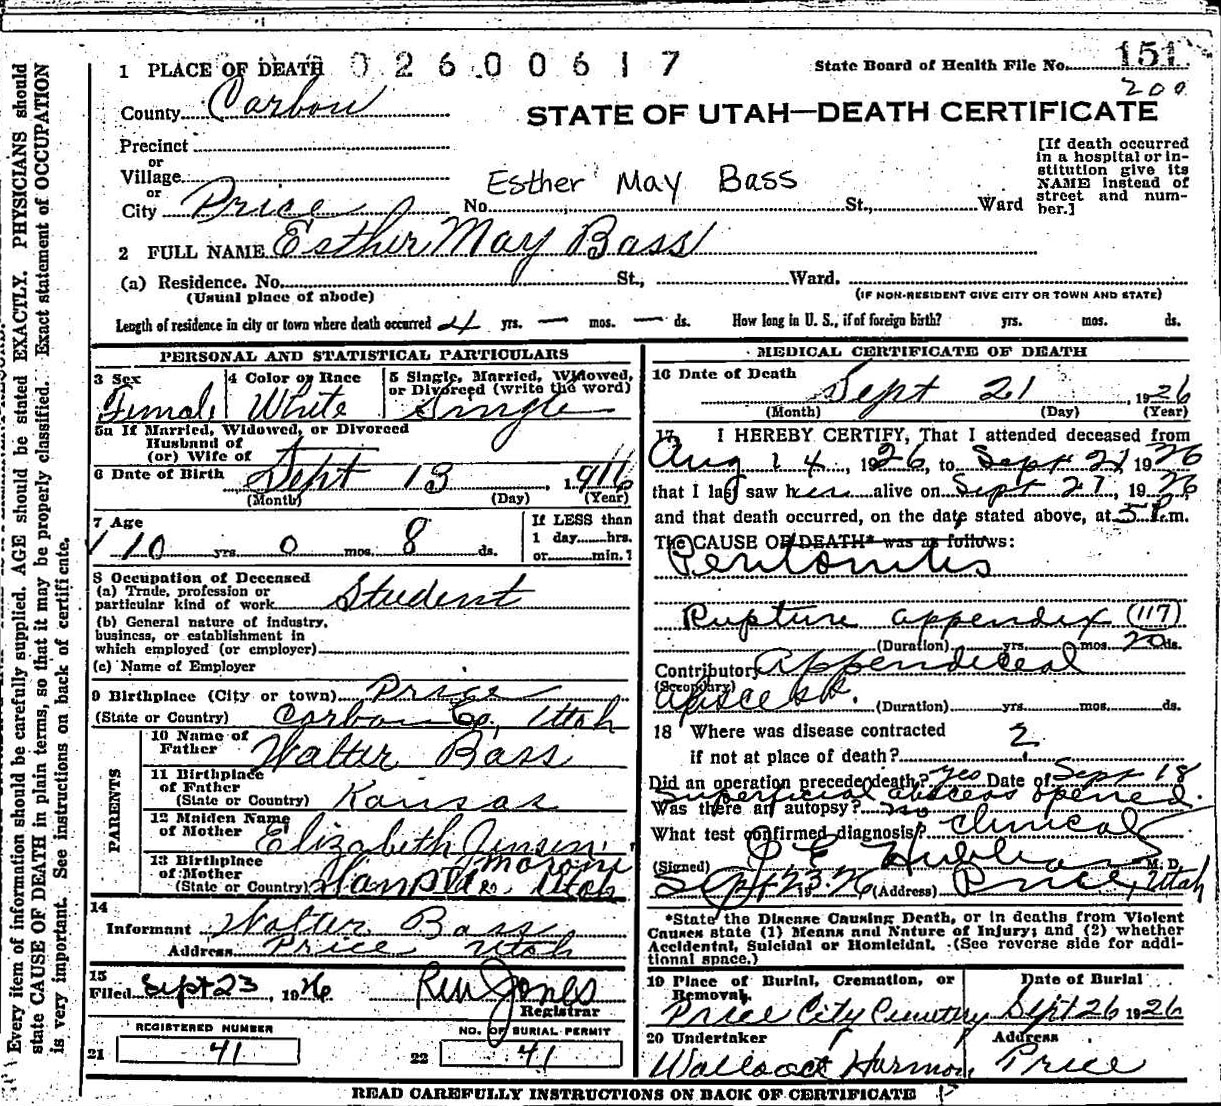 02600617
State Board of Health File No. 151
200
1 PLACE OF DEATH
County Carbon
STATE OF UTAH—DEATH CERTIFICATE
Precinct
or
Village
or
City Price No. St., Ward
Esther May Bass
[If death occurred
in a hospital or in-
stitution give its
NAME instead of
street and num-
ber.]
2 FULL NAME Esther May Bass
(a) Residence. No. St., Ward.
(Usual place of abode)
(IF NON-RESIDENT GIVE CITY OR TOWN AND STATE)
Length of residence in city or town where death occurred 4 yrs. — mos. — ds. How long in U. S., if of foreign birth? yrs. mos. ds.
PERSONAL AND STATISTICAL PARTICULARS
3 Sex
Female
4 Color or Race
White
5 Single, Married, Widowed,
or Divorced (write the word)
Single
5a If Married, Widowed, or Divorced
Husband of
(or) Wife of
6 Date of Birth Sept 13, 1916
(Month) (Day) (Year)
7 Age
10 yrs. 0 mos. 8 ds.
If LESS than
1 day hrs.
or min.?
8 Occupation of Deceased
(a) Trade, profession or
particular kind of work Student
(b) General nature of industry,
business, or establishment in
which employed (or employer)
(c) Name of Employer
9 Birthplace (City or town) Price
(State or Country) Carbon Co, Utah
PARENTS
10 Name of
Father Walter Bass
11 Birthplace
of Father
(State or Country) Kansas
12 Maiden Name
of Mother Elizabeth Jensen
13 Birthplace
of Mother Moroni
(State or Country) Utah
14
Informant Walter Bass
Address Price Utah
15
Filed Sept 23, 1926 Jones
Registrar
REGISTERED NUMBER
21 41
NO. OF BURIAL PERMIT
22 41
MEDICAL CERTIFICATE OF DEATH
16 Date of Death Sept 21, 1926
(Month) (Day) (Year)
17 I HEREBY CERTIFY, That I attended deceased from
Aug 14, 1926, to Sept 21 1926
that I last saw her alive on Sept 21, 1926
and that death occurred, on the date stated above, at 5 P.m.
The CAUSE OF DEATH* was as follows:
Peritonitis
Rupture appendix (117)
(Duration) yrs. mos. 20 ds.
Contributory Appendiceal
(Secondary)
(Duration) yrs. mos. ds.
18 Where was disease contracted
if not at place of death? ?
Did an operation precede death? yes Date of Sept 18
superficial abscess opened.
Was there an autopsy? no
What test confirmed diagnosis? clinical
(Signed) M. D.
Sept 23 1926 (Address) Price, Utah
*State the Disease Causing Death, or in deaths from Violent
Causes state (1) Means and Nature of Injury; and (2) whether
Accidental, Suicidal or Homicidal. (See reverse side for addi-
tional space.)
19 Place of Burial, Cremation, or
Removal
Price City Cemetery
Date of Burial
Sept 26 1926
20 Undertaker
Wallace & Harmon
Address
Price
READ CAREFULLY INSTRUCTIONS ON BACK OF CERTIFICATE
Every item of information should be carefully supplied. AGE should be stated EXACTLY. PHYSICIANS should
state CAUSE OF DEATH in plain terms, so that it may be properly classified. Exact statement of OCCUPATION
is very important. See instructions on back of certificate.